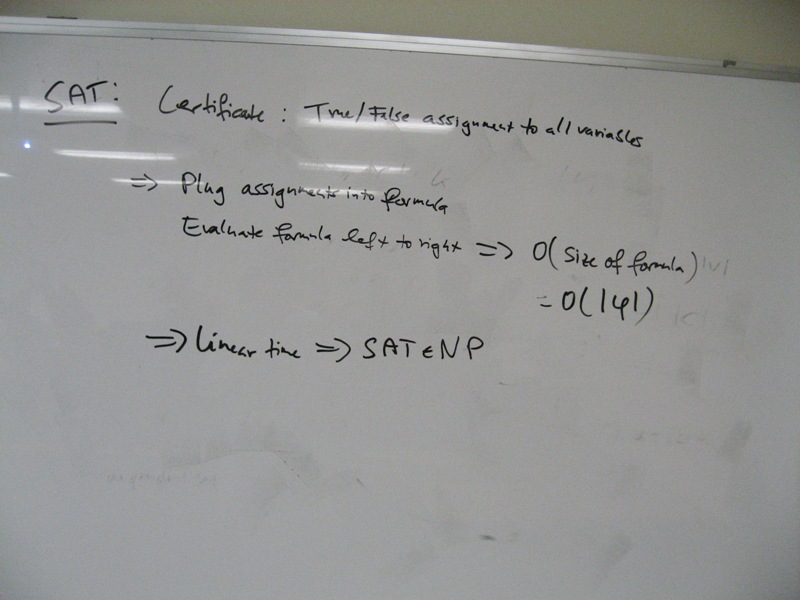 SAT: Certificate : True/False assignment to all variables
=> Plug assignments into formula
Evaluate formula left to right => O(size of formula)
= O(|φ|)
=> Linear time => SAT ∈ NP